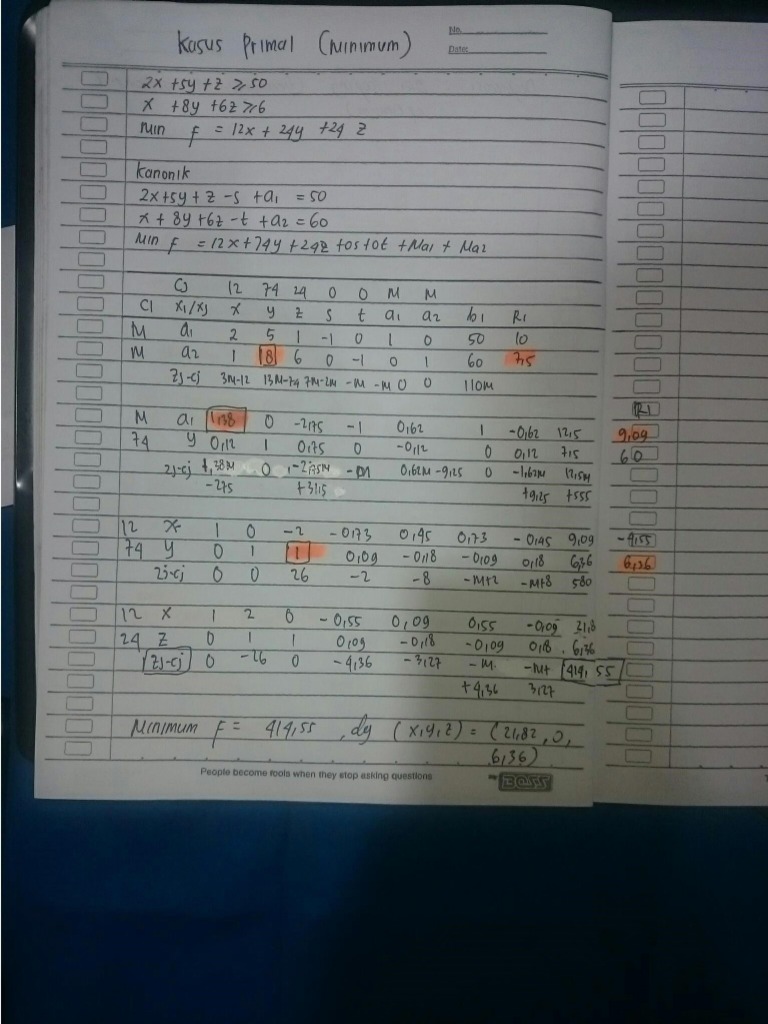 No.
Date:
Kasus Primal (Minimum)
2x + 5y + z ≥ 50
x + 8y + 6z ≥ 6
Min f = 12x + 24y + 24 z
Kanonik
2x + 5y + z - s + a1 = 50
x + 8y + 6z - t + a2 = 60
Min f = 12x + 74y + 24z + 0s + 0t + Ma1 + Ma2
Cj 12 74 24 0 0 M M
Ci xi/xj x y z s t a1 a2 bi Ri
M a1 2 5 1 -1 0 1 0 50 10
M a2 1 8 6 0 -1 0 1 60 7,5
Zj-Cj 3M-12 13M-74 7M-2M -M -M 0 0 110M
Ri
M a1 1,38 0 -2,75 -1 0,62 1 -0,62 12,5 9,09
74 y 0,12 1 0,75 0 -0,12 0 0,12 7,5 60
Zj-Cj 1,38M 0 -2,75M -M 0,62M -9,25 0 -1,62M 12,5M
-2,75 +31,5 +9,25 +555
12 x 1 0 -2 -0,73 0,45 0,73 -0,45 9,09 -4,55
74 y 0 1 1 0,09 -0,18 -0,09 0,18 6,36 6,36
Zj-Cj 0 0 26 -2 -8 -M+2 -M+8 580
12 x 1 2 0 -0,55 0,09 0,55 -0,09 21,8
24 z 0 1 1 0,09 -0,18 -0,09 0,18 6,36
Zj-Cj 0 -26 0 -4,36 -3,27 -M -M+ 414,55
+4,36 3,27
Minimum F = 414,55 , dg (x,y,z) = (21,82, 0,
6,36)
People become fools when they stop asking questions
BOSS